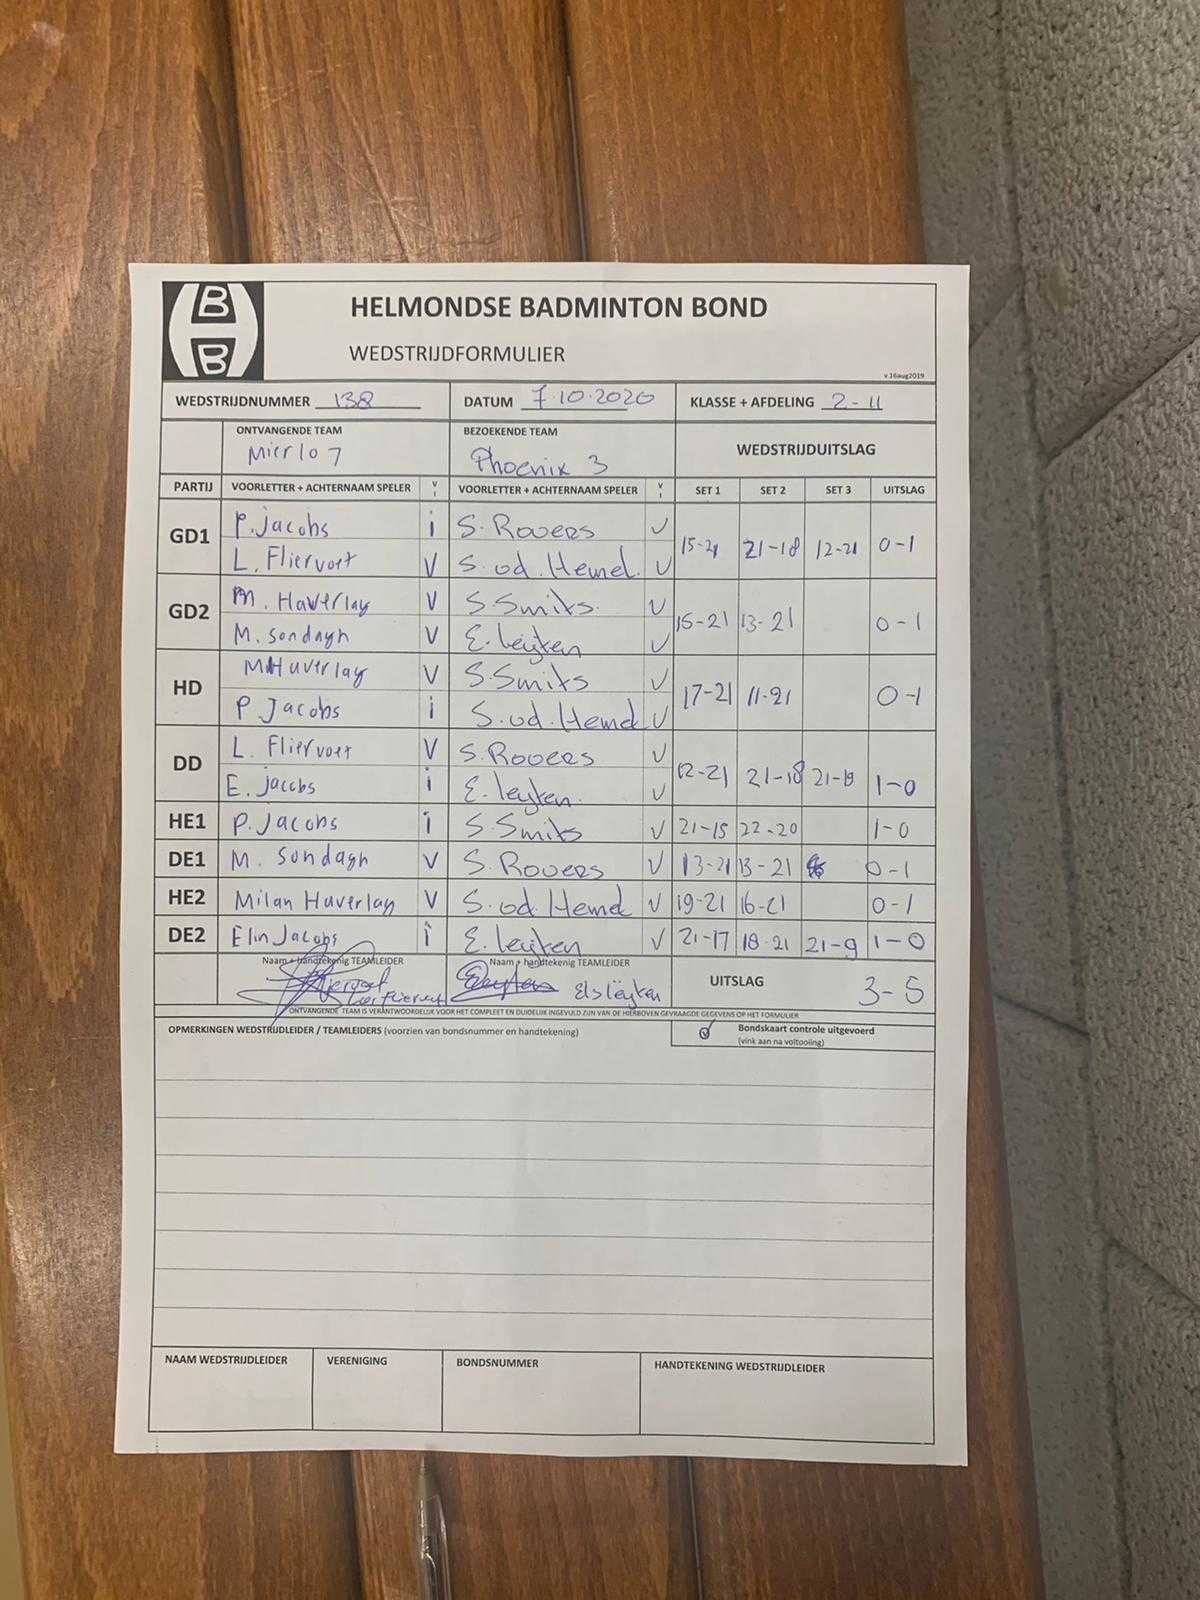 B
B
HELMONDSE BADMINTON BOND
WEDSTRIJDFORMULIER
v.16aug2019
WEDSTRIJDNUMMER 138 DATUM 7.10.2020 KLASSE + AFDELING 2-11
ONTVANGENDE TEAM BEZOEKENDE TEAM WEDSTRIJDUITSLAG
Mierlo 7 Phoenix 3
PARTIJ VOORLETTER + ACHTERNAAM SPELER V I VOORLETTER + ACHTERNAAM SPELER V I SET 1 SET 2 SET 3 UITSLAG
GD1 P. Jacobs i S. Rovers V 15-21 21-18 12-21 0-1
L. Fliervoet V S. vd. Hemel V
GD2 M. Haverlag V S. Smits V 15-21 13-21 0-1
M. Sondagh V E. Leijten V
HD M Haverlag V S. Smits V 17-21 11-21 0-1
P Jacobs i S. vd. Hemel V
DD L. Fliervoet V S. Rovers V 12-21 21-18 21-19 1-0
E. Jacobs i E. Leijten V
HE1 P. Jacobs i S. Smits V 21-15 22-20 1-0
DE1 M. Sondagh V S. Rovers V 13-21 13-21 0-1
HE2 Milan Haverlag V S. vd. Hemel V 19-21 16-21 0-1
DE2 Elin Jacobs i E. Leijten V 21-17 18-21 21-9 1-0
Naam + handtekenig TEAMLEIDER Naam + handtekenig TEAMLEIDER UITSLAG 3-5
Els Leijten
ONTVANGENDE TEAM IS VERANTWOORDELIJK VOOR HET COMPLEET EN DUIDELIJK INGEVULD ZIJN VAN DE HIERBOVEN GEVRAAGDE GEGEVENS OP HET FORMULIER
OPMERKINGEN WEDSTRIJDLEIDER / TEAMLEIDERS (voorzien van bondsnummer en handtekening) Bondskaart controle uitgevoerd
(vink aan na voltooiing)
NAAM WEDSTRIJDLEIDER VERENIGING BONDSNUMMER HANDTEKENING WEDSTRIJDLEIDER